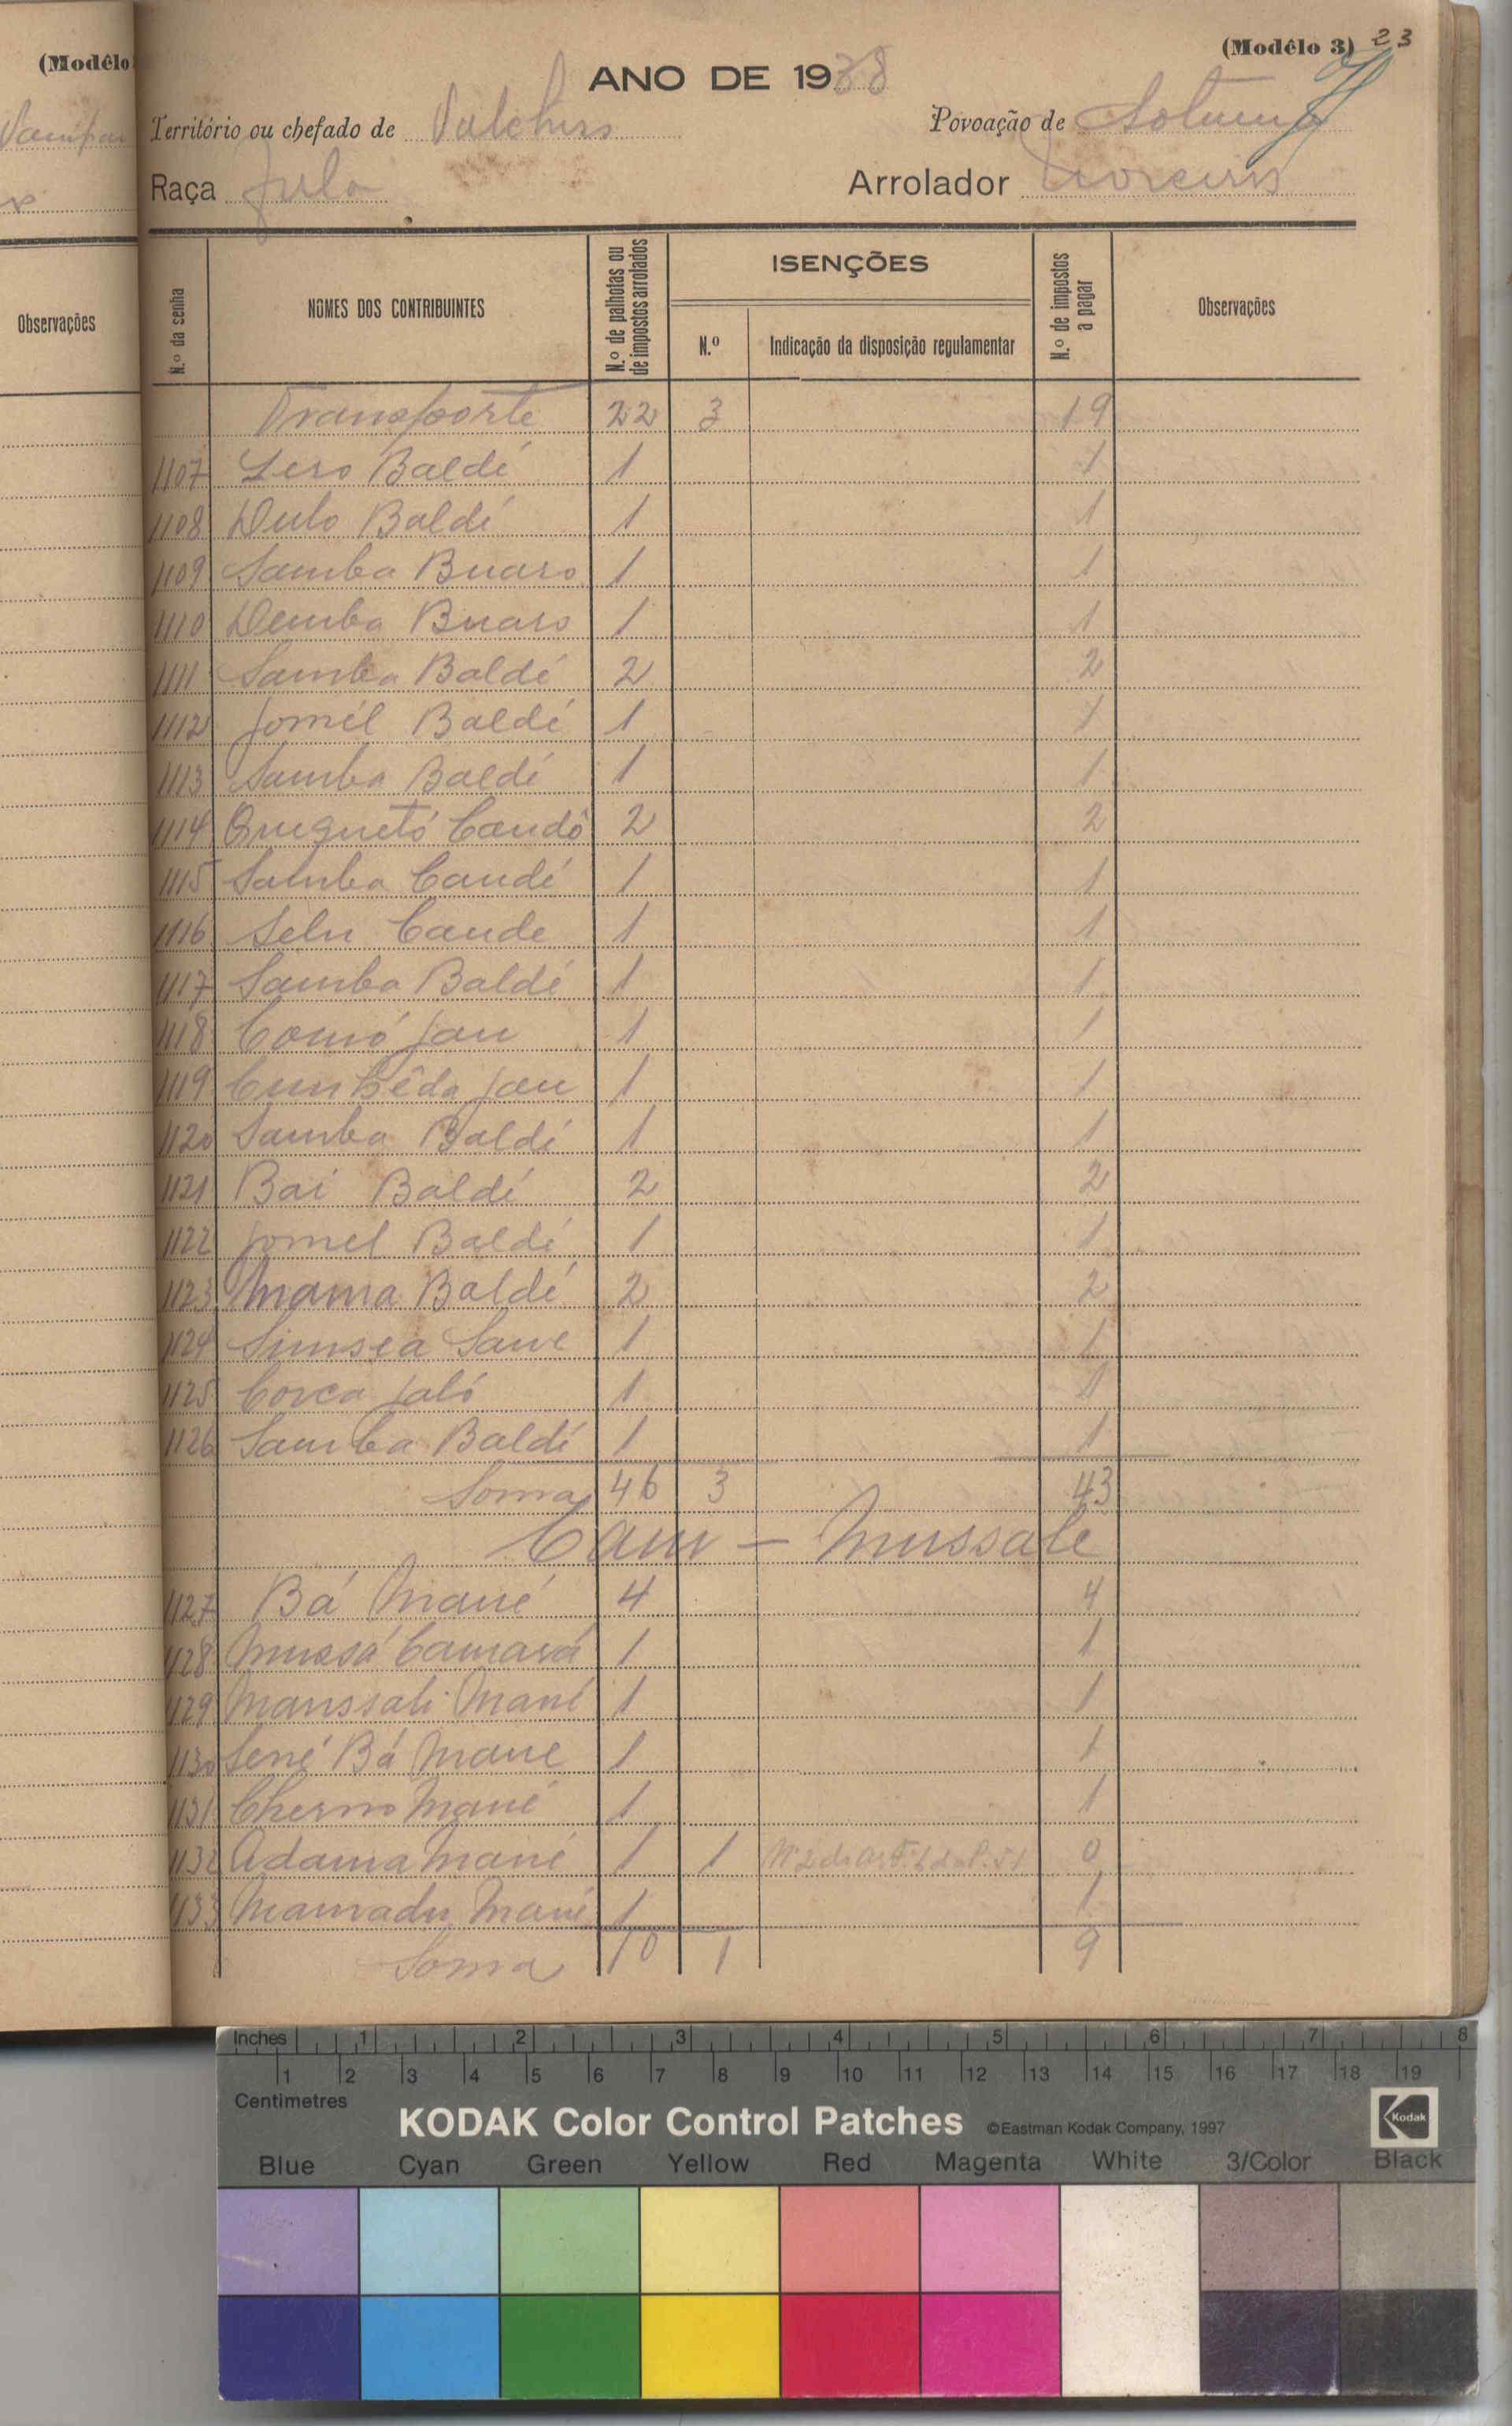 (Modêlo
Observações
(Modêlo 3) 23
ANO DE 1938
Território ou chefado de
Povoação de
Raça Fula
Arrolador Moreira
N.º da senha
NOMES DOS CONTRIBUINTES
N.º de palhotas ou de impostos arrolados
ISENÇÕES
N.º
Indicação da disposição regulamentar
N.º de impostos a pagar
Observações
Transporte 22 3 19
1107 Lero Baldé 1 1
1108 Dulo Baldé 1 1
1109 Samba Buaro 1 1
1110 Demba Buaro 1 1
1111 Samba Baldé 2 2
1112 Jomél Baldé 1 1
1113 Samba Baldé 1 1
1114 Quequetó Candé 2 2
1115 Samba Candé 1 1
1116 Selu Cande 1 1
1117 Samba Baldé 1 1
1118 Comó Jau 1 1
1119 Jau 1 1
1120 Samba Baldé 1 1
1121 Bai Baldé 2 2
1122 Jomel Baldé 1 1
1123 Mama Baldé 2 2
1124 Sane 1 1
1125 Corca Jaló 1 1
1126 Samba Baldé 1 1
Soma 46 3 43
Cam - Mussale
1127 Bá Mané 4 4
1128 Mussá Camará 1 1
1129 Manssali Mané 1 1
1130 Sené Bá Mane 1 1
1131 Cherno Mané 1 1
1132 Adama Mané 1 1 0
1133 Mamadu Mané 1 1
Soma 10 1 9
Inches 1 2 3 4 5 6 7 8
1 2 3 4 5 6 7 8 9 10 11 12 13 14 15 16 17 18 19
Centimetres
KODAK Color Control Patches ©Eastman Kodak Company, 1997 Kodak
Blue Cyan Green Yellow Red Magenta White 3/Color Black